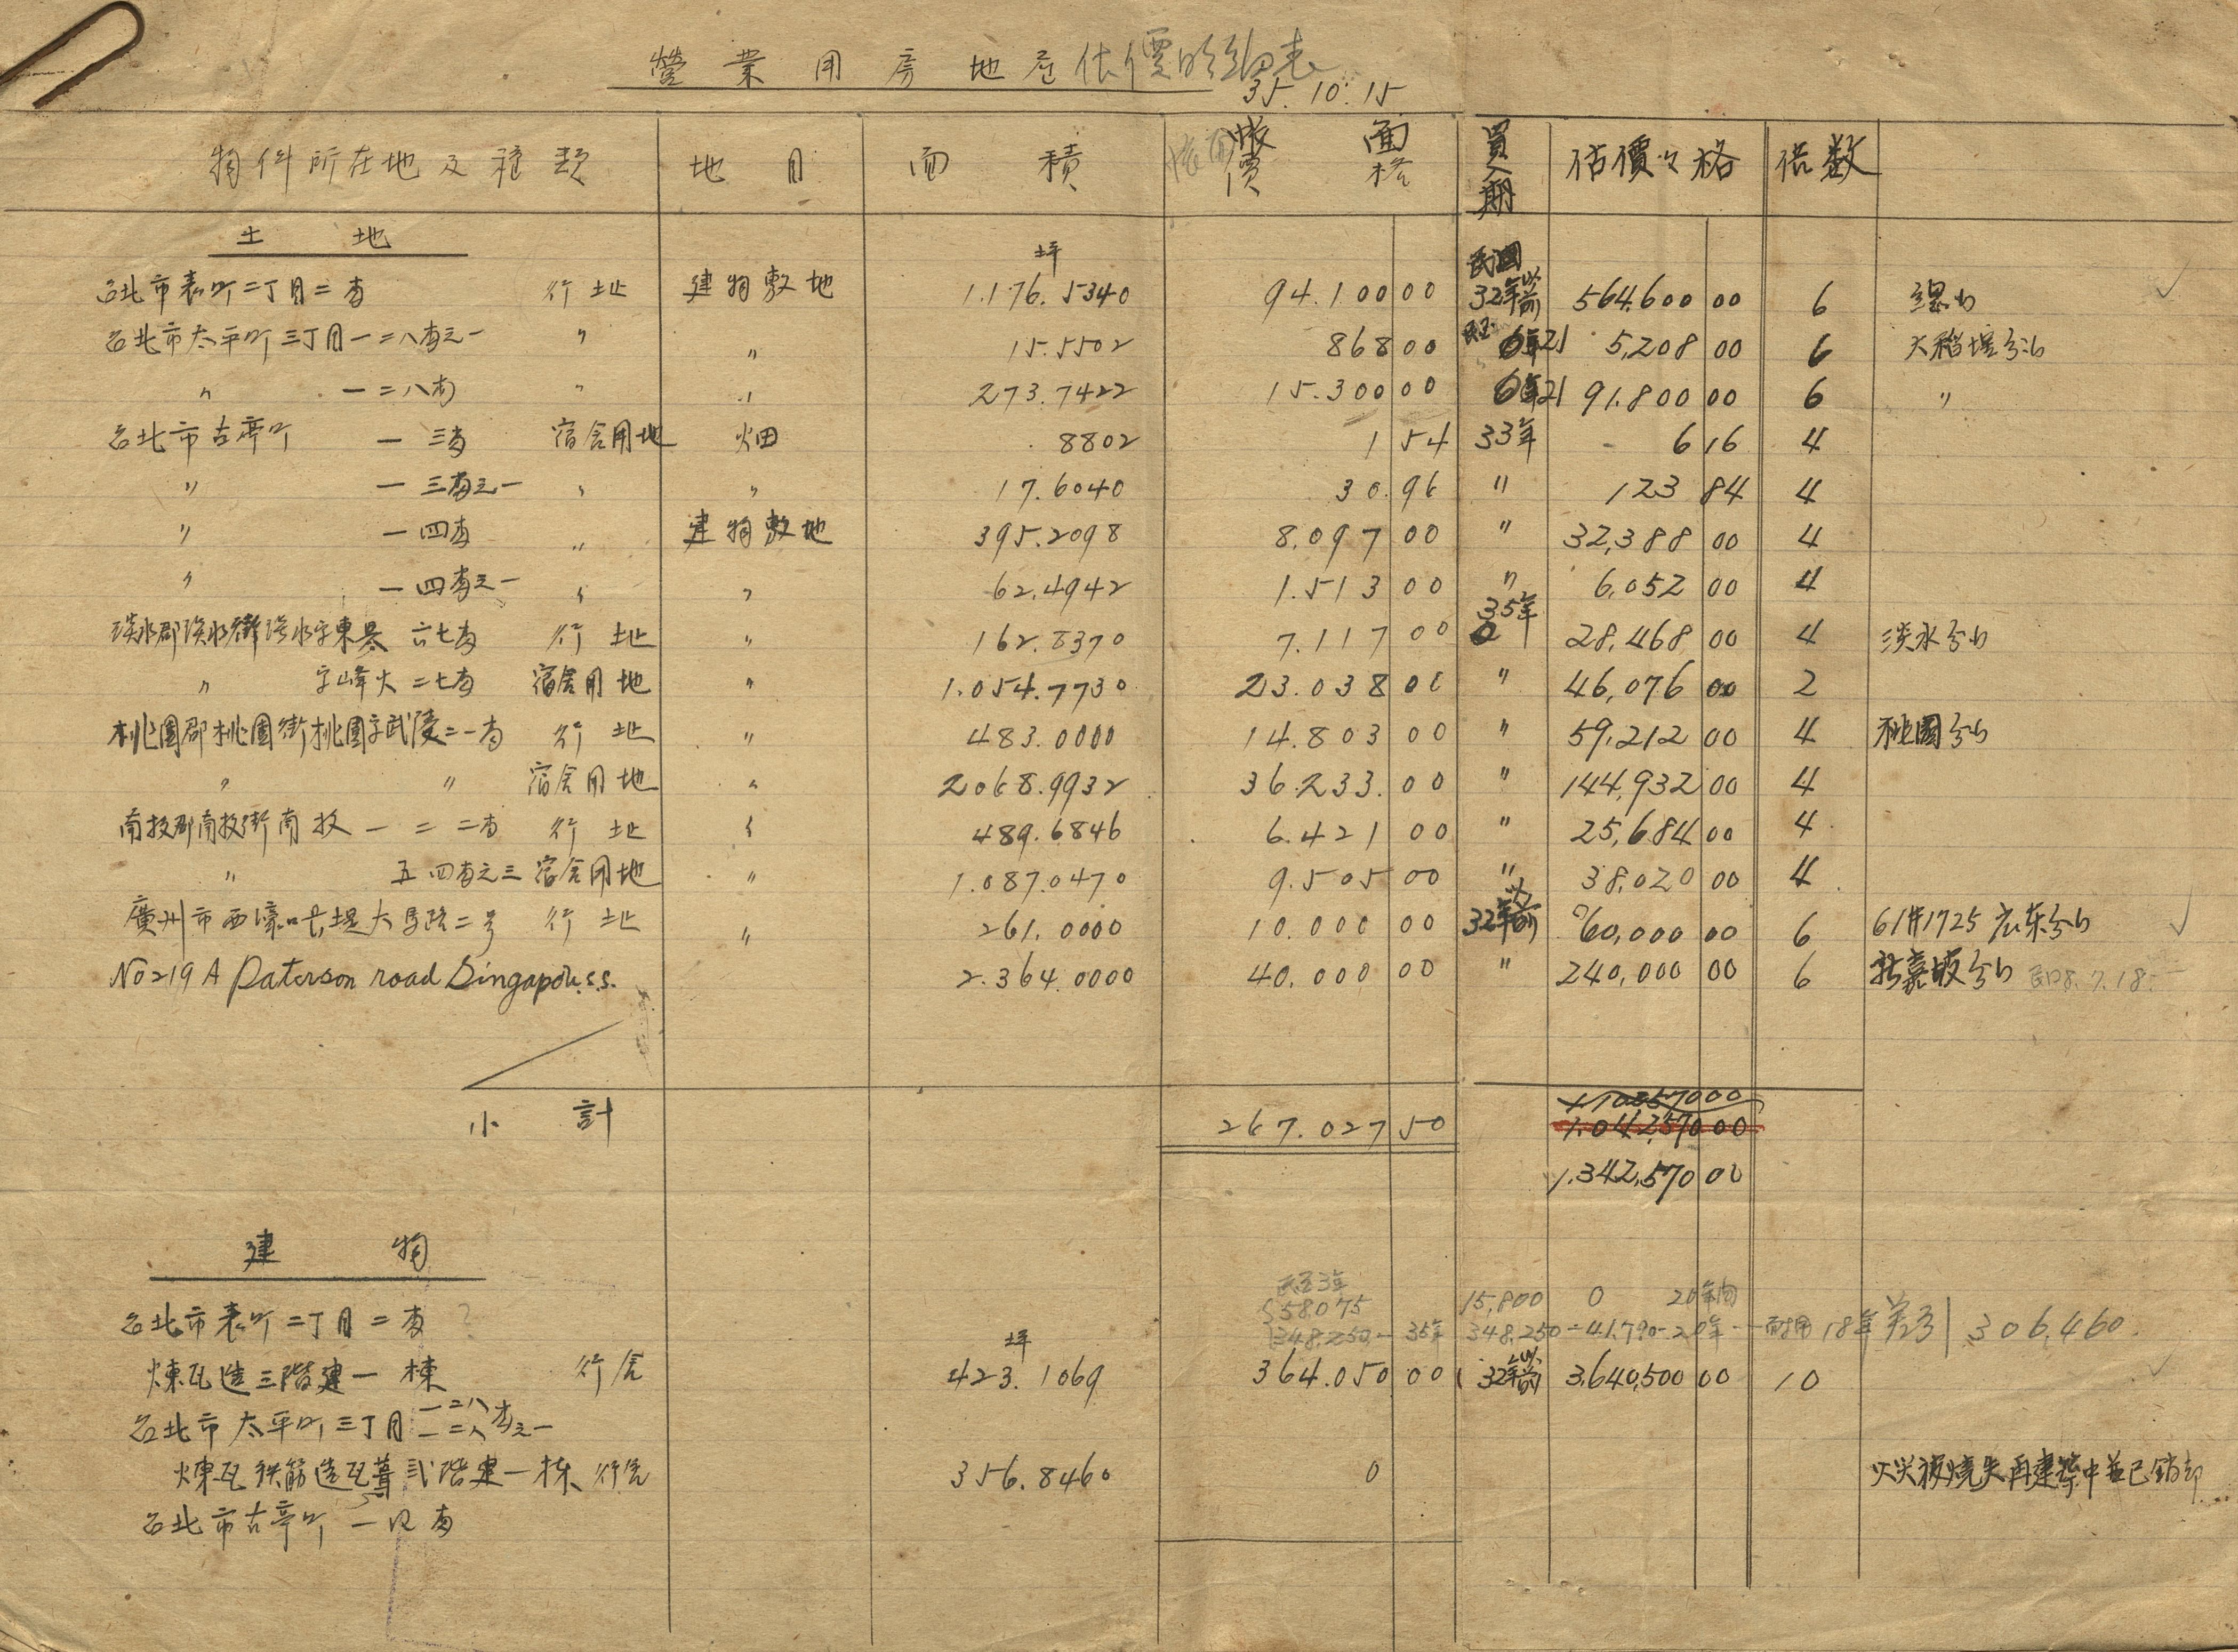 營業用房地產估價明細表
35.10.15
物件所在地及種類 地目 面積 帳面價格 買入期 估價價格 倍数
土地
坪
台北市表町二丁目二番 行址 建物敷地 1.176.5340 94.100 00 民国32年以前 564,600 00 6
台北市太平町三丁目一二八番之一 〃 〃 15.5502 868 00 21 5,208 00 6 大稻埕分行
〃 一二八番 〃 〃 273.7422 15.300 00 21 91.800 00 6 〃
台北市古亭町 一三番 宿舍用地 畑 .8802 1 54 33年 6 16 4
〃 一三番之一 〃 〃 17.6040 30.96 〃 123 84 4
〃 一四番 〃 建物敷地 395.2098 8.097 00 〃 32,388 00 4
〃 一四番之一 〃 〃 62.4942 1.513 00 〃 6,052 00 4
淡水郡淡水街淡水字東 六七番 行址 〃 162.8370 7.117 00 35年 28,468 00 4 淡水分行
〃 字烽火 二七番 宿舍用地 〃 1.054.7730 23.038 00 〃 46,076 00 2
桃園郡桃園街桃園字武陵二一番 行址 〃 483.0000 14.803 00 〃 59,212 00 4 桃園分行
〃 〃 宿舍用地 〃 2068.9932 36.233. 00 〃 144,932 00 4
南投郡南投街南投一二二番 行址 〃 489.6846 6.421 00 〃 25,684 00 4
〃 五四番之三 宿舍用地 〃 1.087.0470 9.505 00 〃 38,020 00 4
廣州市西濠口長堤大馬路二号 行址 〃 261.0000 10.000 00 32年以前 60,000 00 6 分行
No 219 A Paterson road Singapore.s.s. 2.364.0000 40.000 00 〃 240,000 00 6 新嘉坡分行 8.7.18.
小計 267.027 50
1.042,570 00
1.342,570 00
建物
台北市表町二丁目二番
58075 15,800 0 20年
348,250 35年 348,250 41,790 20年 耐用18年 306,460
坪
煉瓦造三階建一棟 行舍 423.1069 364.050 00 32年以前 3,640,500 00 10
台北市太平町三丁目一二八 一二八番之一
煉瓦鉄筋造瓦葺弐階建一棟 行舍 356.8460 0 火災被燒失再建築中並已銷却
台北市古亭町 一四番